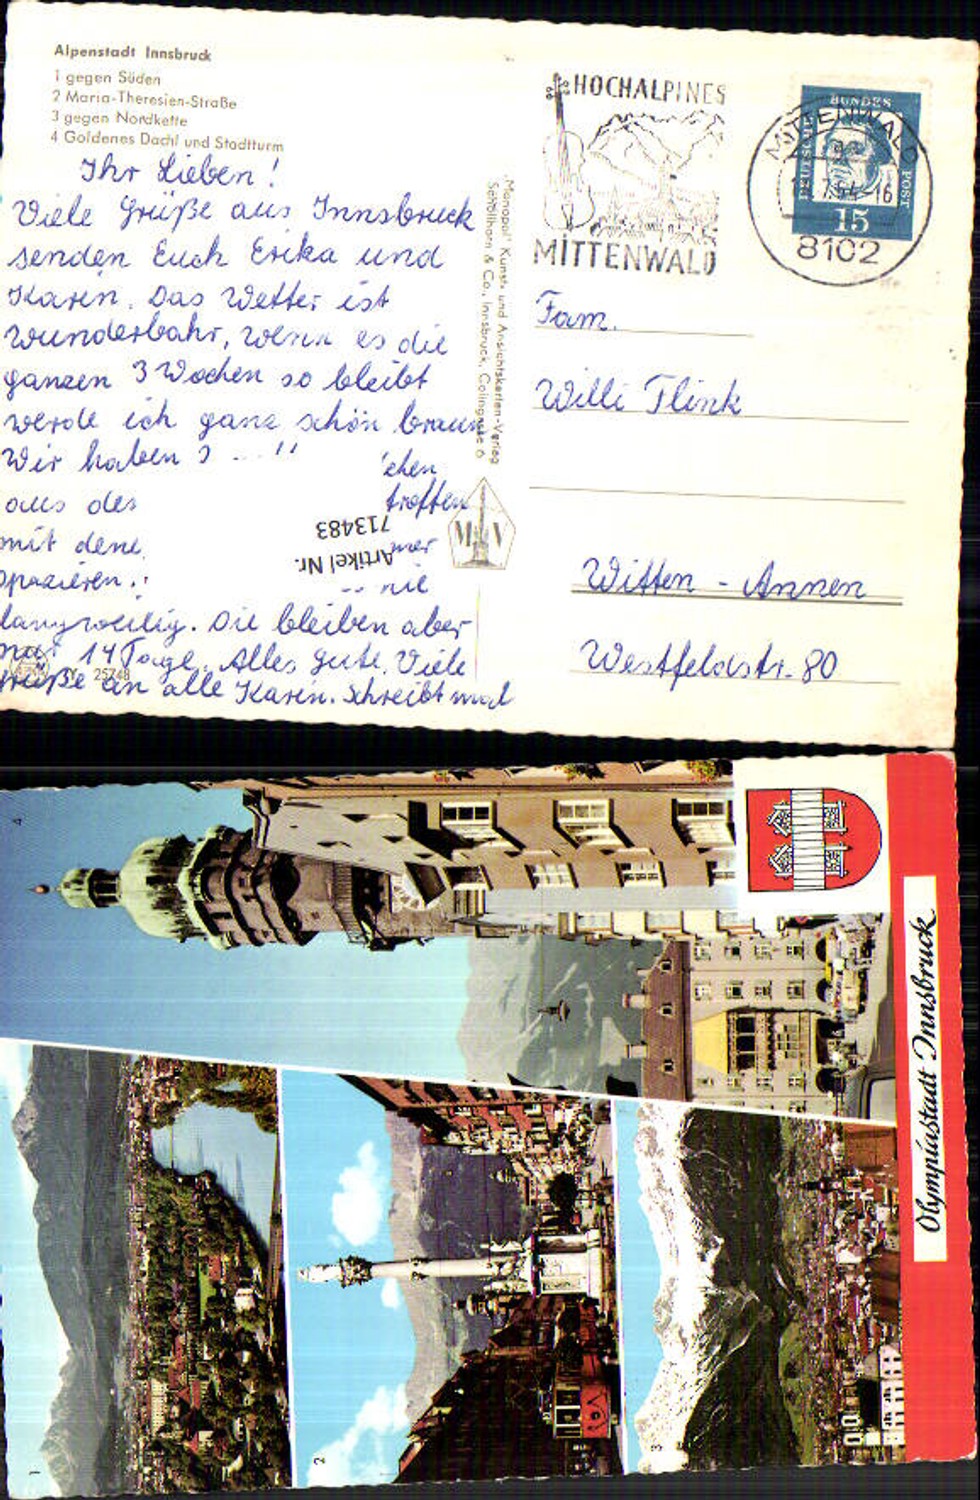 Alpenstadt Innsbruck
1 gegen Süden
2 Maria-Theresien-Straße
3 gegen Nordkette
4 Goldenes Dachl und Stadtturm
Ihr Lieben!
Viele Grüße aus Innsbruck
senden Euch Erika und
Karin. Das Wetter ist
wunderbahr, wenn es die
ganzen 3 Wochen so bleibt
werde ich ganz schön braun
Wir haben
aus des troffen
mit
spazieren. nie
langweilig. Die bleiben aber
nur 14 Tage. Alles Gute. Viele
Grüße an alle Karin. Schreibt mal
25748
Artikel Nr.
713483
"Monopol" Kunst- und Ansichtskarten-Verlag
Schöllhorn & Co., Innsbruck, Colingasse 6
M V
HOCHALPINES
MITTENWALD
MITTENWALD
8102
DEUTSCHE
BUNDES
POST
15
Fam.
Willi Flink
Witten - Annen
Westfeldstr. 80
Olympiastadt Innsbruck
4
1
2
3